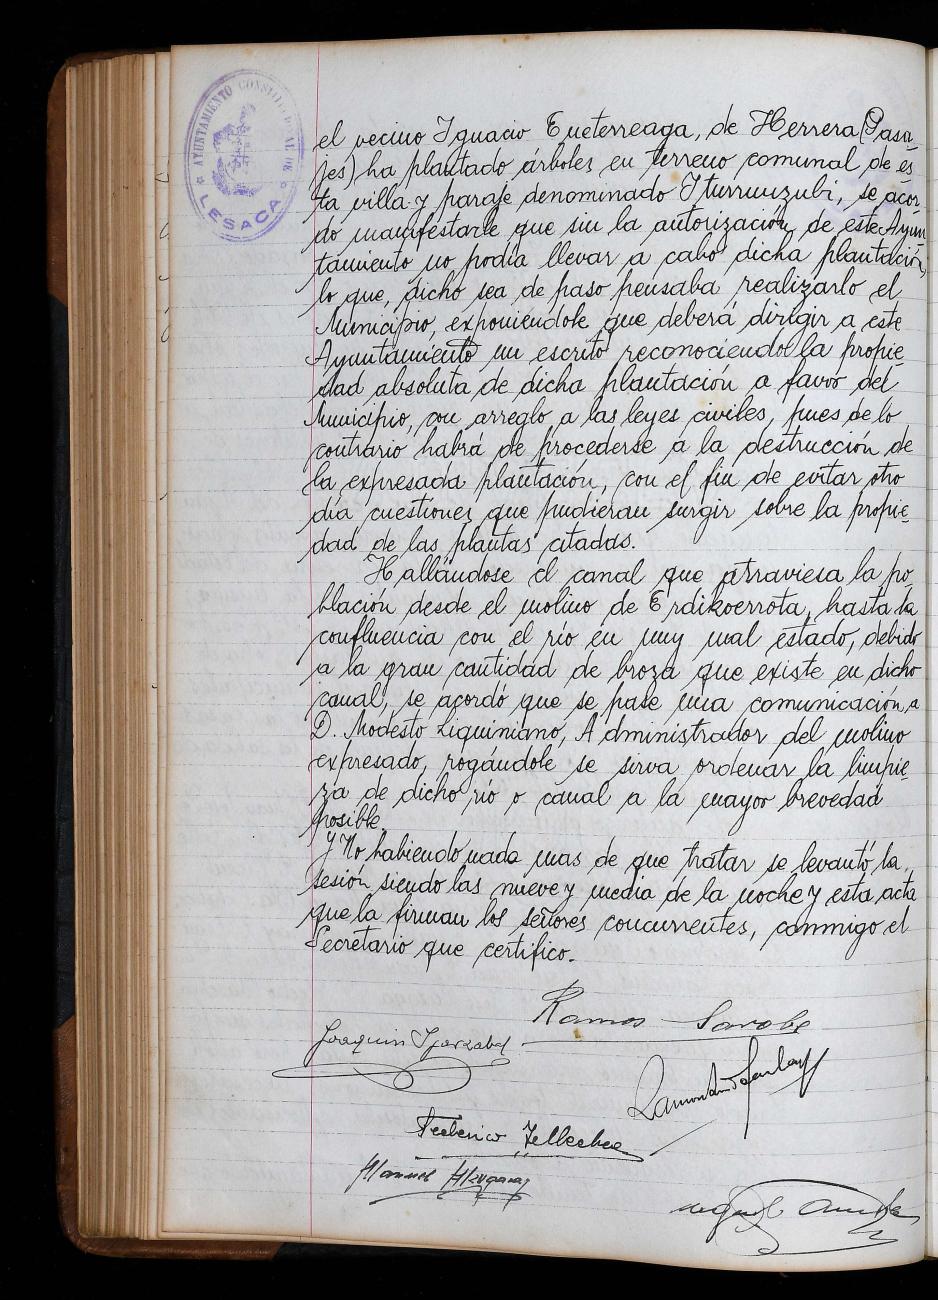 AYUNTAMIENTO CONSTITUCIONAL DE
LESACA
el vecino Ignacio Eueterreaga, de Herrera (Pasa-
jes) ha plantado árboles en terreno comunal de es-
ta villa y paraje denominado Iturruuzubi, se acor-
do manifestarle que sin la autorización, de este Ayun
tamiento no podía llevar a cabo dicha plantación,
lo que, dicho sea de paso pensaba realizarlo el
Municipio, exponiendole que deberá dirigir a este
Ayuntamiento un escrito reconociendo la propie-
dad absoluta de dicha plantación a favor del
Municipio, con arreglo a las leyes civiles, pues de lo
contrario habrá de procederse a la destrucción de
la expresada plantación, con el fin de evitar otro
día cuestiones que pudieran surgir sobre la propie-
dad de las plantas citadas.
Hallándose el canal que atraviesa la po-
blación desde el molino de Erdikoerrota, hasta la
confluencia con el río en muy mal estado, debido
a la gran cantidad de broza que existe en dicho
canal, se acordó que se pase una comunicación a
D. Modesto Liquiniano, Administrador del molino
expresado, rogándole se sirva ordenar la limpie-
za de dicho río o canal a la mayor brevedad
posible.
Y No habiendo nada mas de que tratar se levantó la
sesión siendo las nueve y media de la noche y esta acta
que la firman los señores concurrentes, conmigo el
Secretario que certifico.
Ramos Sarobe
Joaquin Iparzabal
Federico Tellechea
Manuel
Miguel